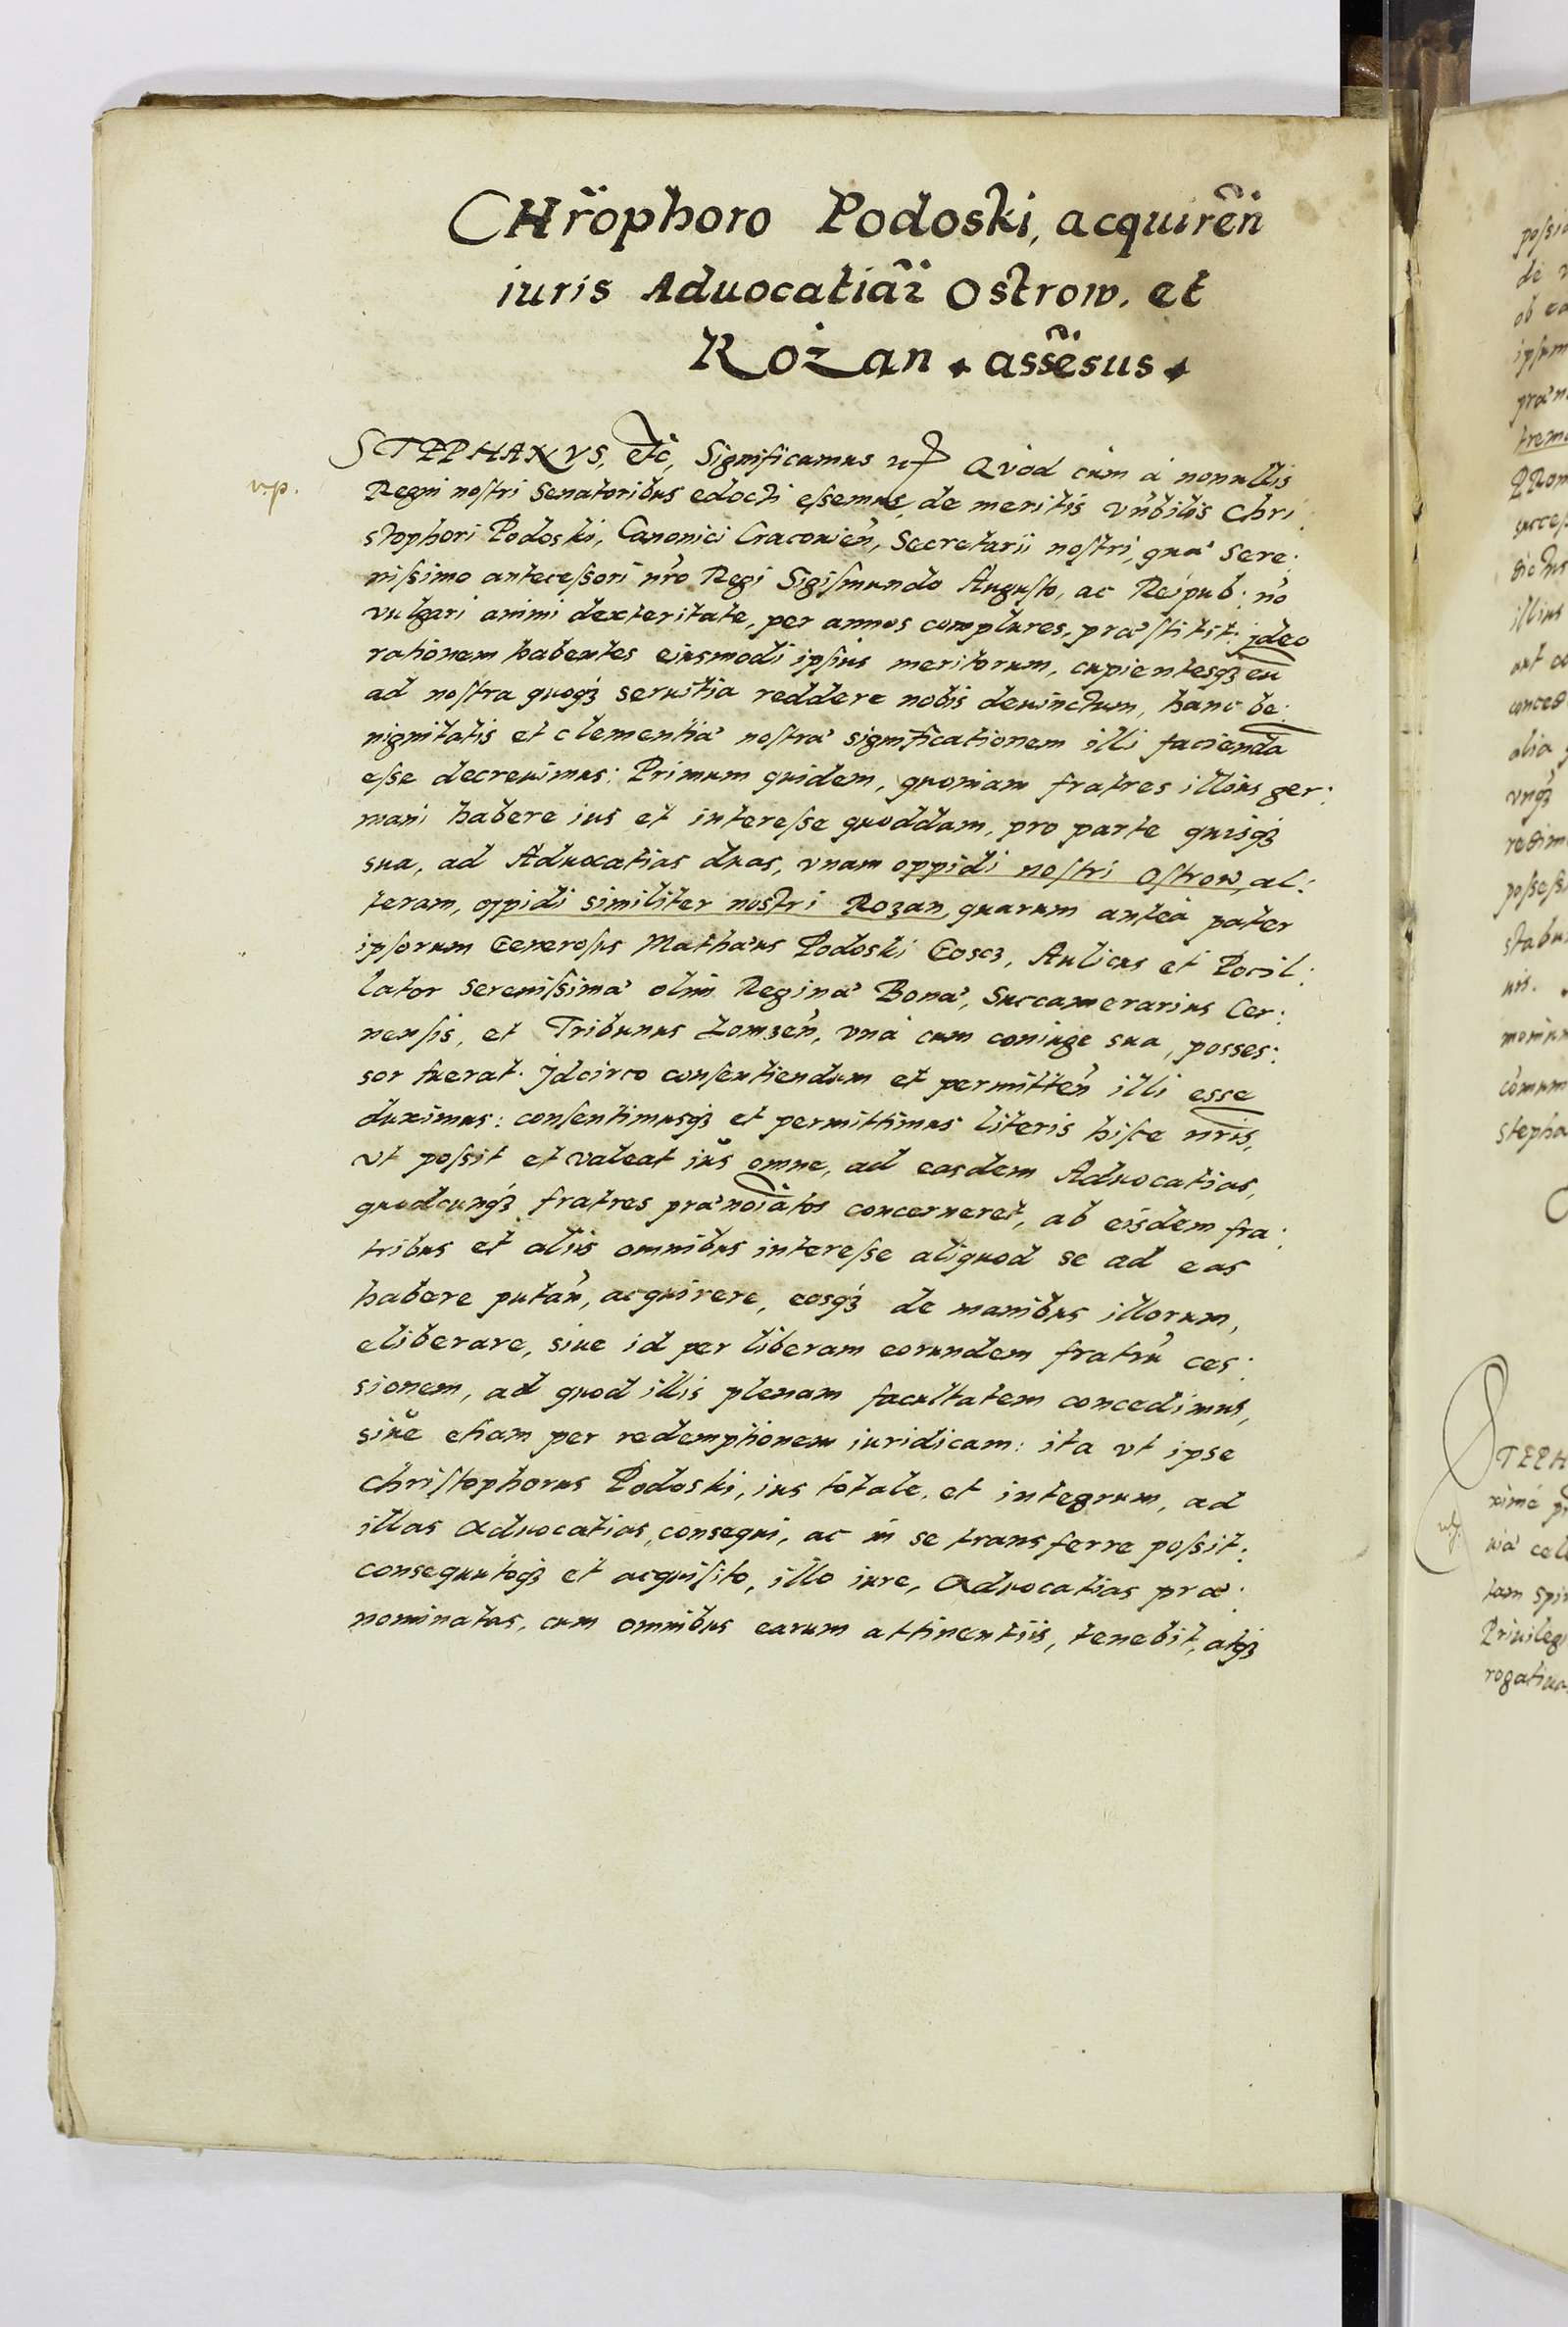 CHr̃ophoro Podoski, acquireñ
iuris Aduocatiaꝝ Ostrow. et
Rożan assẽsus
STEPHANVS, etc̃, Significamus Quod cùm à nonullis
v.p.
Regni noſtri Senatoribus edocti eſsemus, de meritis vñbilis Chri:
stophori Podoski, Canonici Cracouień, Secretarii noſtri, quæ Sere:
niſsimo anteceſsori ñro Regi Sigiſmundo Auguſto, ac Reipub: nõ
vulgari animi dexteritate, per annos complures, præſtitit: jdeo
rationem habentes eiusmodi ipſius meritorum, cupientesqȝ eũ
ad noſtra quoqȝ seruitia reddere nobis deuinctum, hanc be:
nignitatis et clementiæ noſtræ significationem illi faciendã
eſse decreuimus: Primum quidem, quoniam fratres illius ger:
mani habere ius et intereſse quoddam, pro parte quisqȝ
sua, ad Aduocatias duas, vnam oppidi noſtri Oſtrow, al:
teram, oppidi similiter nostri Rozan, quarum anteà pater
ipſorum Generoſus Mathæus Podoski Goscz, Aulicus et Pocil:
lator Sereniſsimæ olim Reginæ Bonæ, Succamerarius Cer:
nenſis, et Tribunus Lomzeń, vnà cum coniuge sua, posses:
sor fuerat. Jdcirco conſentiendum et permitteń illi esse
duximus: conſentimusqȝ et permittimus literis hiſce ñris,
vt poſsit et valeat iũs omne, ad easdem Aduocatias,
quodcunqȝ fratres prænoiãtos concerneret, ab eisdem fra:
tribus et aliis omnibus intereſse aliquod se ad eas
habere putań, acquirere, easqȝ de manibus illorum,
eliberare, siue id per liberam eorundem fratrũ ces:
sionem, ad quod illis plenam facultatem concedimus,
siũe etiam per redemptionem iuridicam: ita vt ipse
Chriſtophorus Podoski, ius totale, et integrum, ad
illas Aduocatias, consequi, ac in se transferre poſsit:
consequutoqȝ et acquiſito, illo iure, Aduocatias præ:
nominatas, cum omnibus earum attinentiis, tenebit, atqȝ